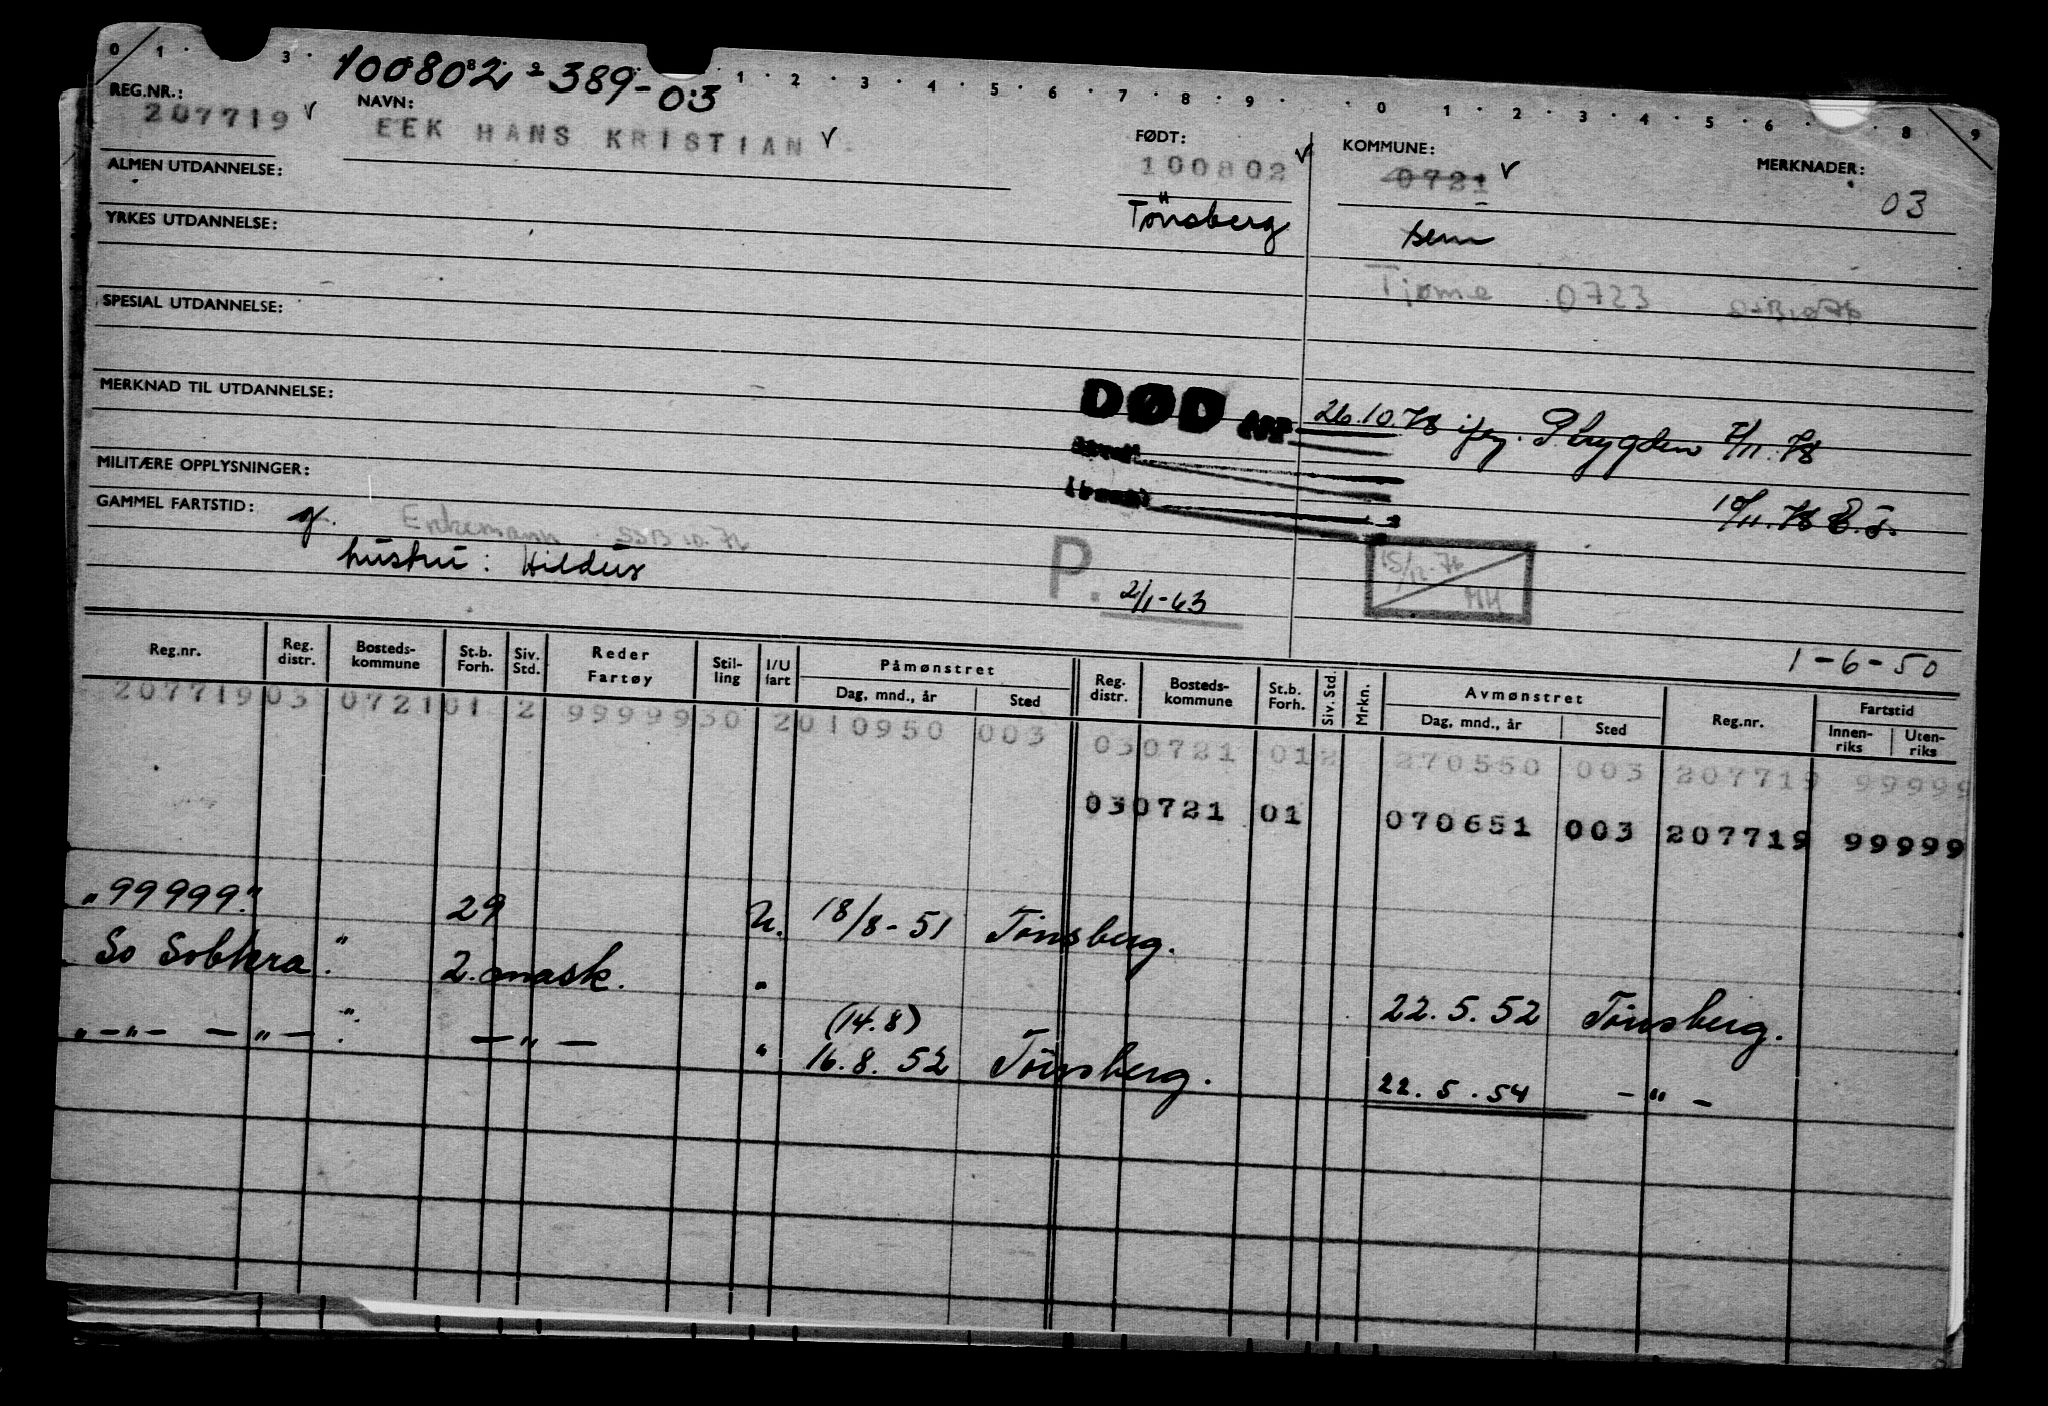 0 1 . 3 . 100802 389-03 1 . 2 . 3 . 4 . 5 . 6 . 7 . 8 . 9 . . 0 1 . 2 . 3 . 4 . 5 . 6 . 8 9
REG.NR.: NAVN: FØDT: KOMMUNE: MERKNADER:
207719 v EEK HANS KRISTIAN v 100802 v 0721 v 03
ALMEN UTDANNELSE: Tönsberg sem
YRKES UTDANNELSE:
Tjøme 0723
SPESIAL UTDANNELSE:
MERKNAD TIL UTDANNELSE:
DØD 26.10.78 Trygden 7/11.78
MILITÆRE OPPLYSNINGER:
10/11.78
GAMMEL FARTSTID: gf. Enkemann
hustru: Hildur
P. 2/1-63 15/12-76 MH
1-6-50
Reg.nr. Reg. distr. Bosteds-kommune St.b. Forh. Siv. Std. Reder Fartøy Stil-ling I/U fart Påmønstret Dag, mnd., år Sted Reg. distr. Bosteds-kommune St.b. Forh. Siv. Std. Mrkn. Avmønstret Dag, mnd., år Sted Reg.nr. Fartstid Innen-riks Uten-riks
207719 03 0721 01 2 9999930 2 010950 003 03 0721 01 2 270550 003 207719 99999
03 0721 01 070651 003 207719 99999
"99999" 29 U. 18/8-51 Tönsberg.
So Solhkra " 2. mask. " 22.5.52 Tönsberg.
(14.8)
"-"- -"- " -"- " 16.8.52 Tönsberg. 22.5.54 -"-